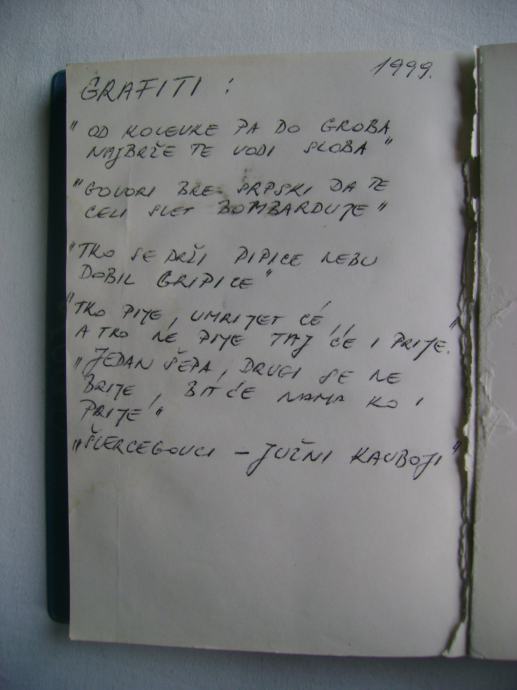 1999.
GRAFITI :
" OD KOLEVKE PA DO GROBA
NAJBRŽE TE VODI SLOBA "
" GOVORI BRE SRPSKI DA TE
CELI SVET BOMBARDUJE "
" TKO SE DRŽI PIPICE NEBU
DOBIL GRIPICE "
" TKO PIJE, UMRIJET ĆE,
A TKO NE PIJE TAJ ĆE I PRIJE. "
" JEDAN ŠEPA, DRUGI SE NE
BRIJE, BIT ĆE NAMA KO I
PRIJE "
" ŠVERCEGOVCI – JUŽNI KAUBOJI "